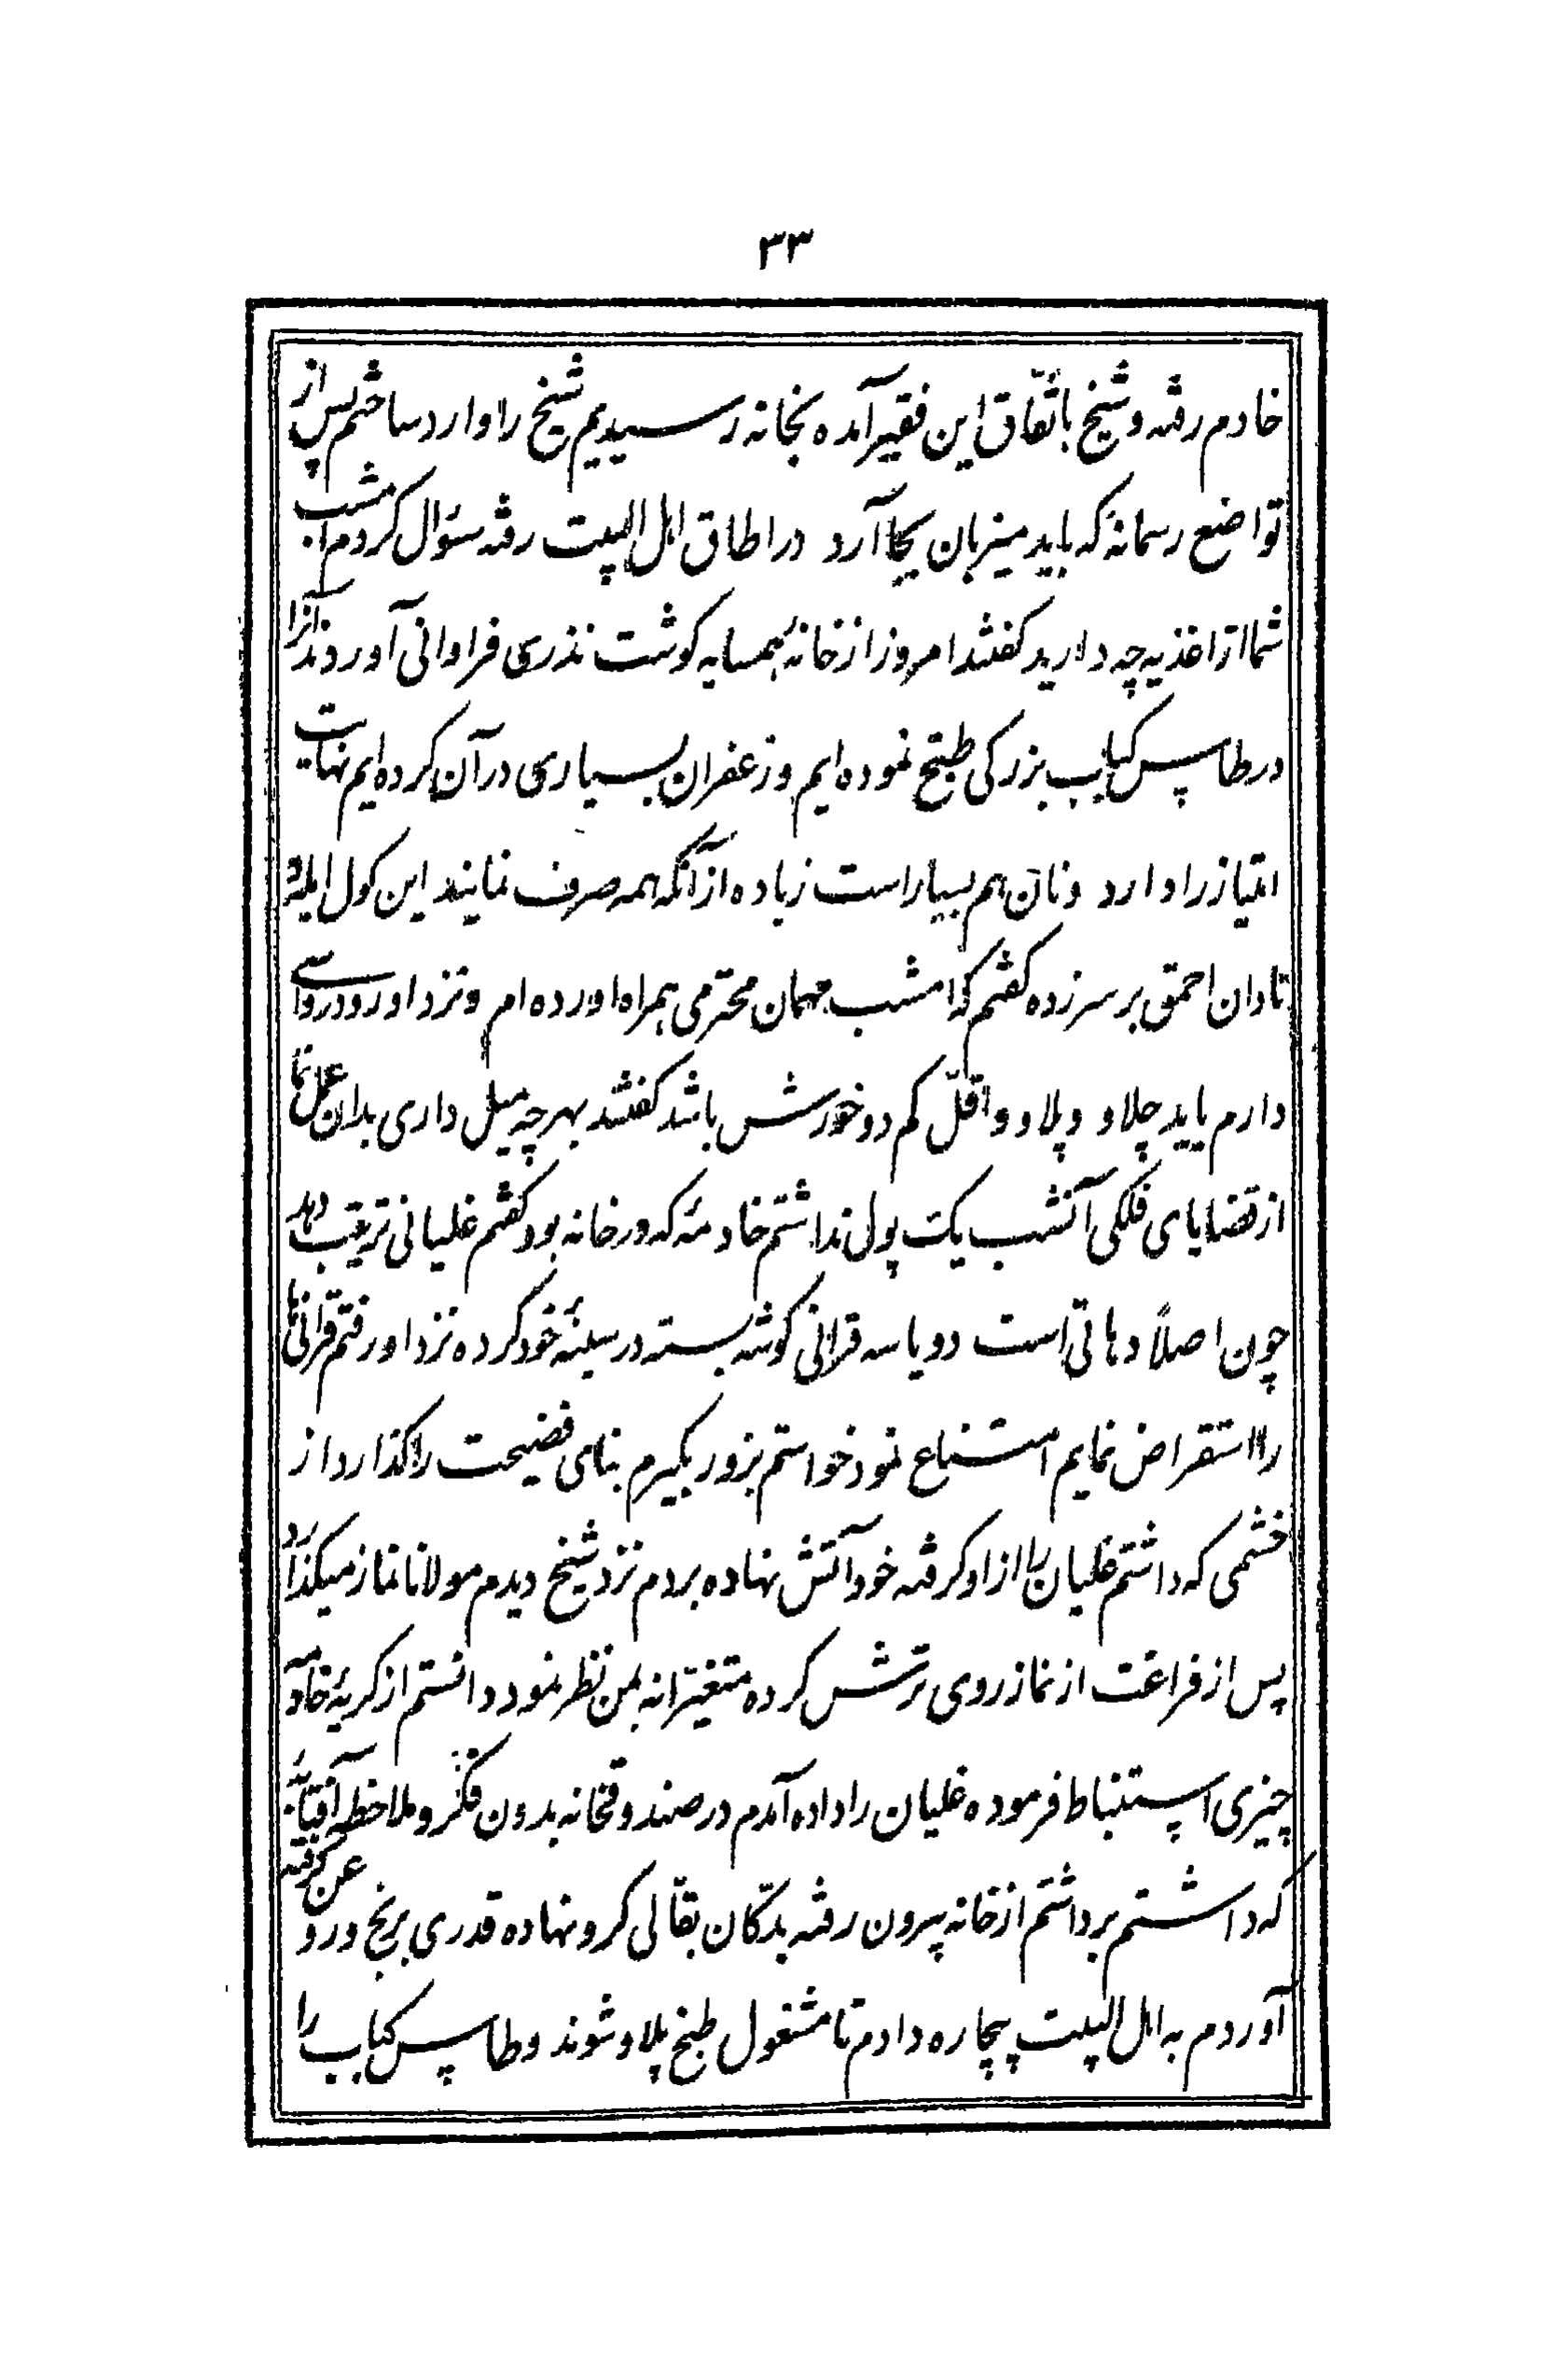 ۳۳
خادم رفته و شیخ باتّفاق این فقیر آمده بخانه رسیدیم شیخ را وارد ساختم پس از
تواضع رسمانهٔ که باید میزبان بجا آرد در اطاق اهل البیت رفته سئوال کردم امشب
شما از اغذیه چه دارید کفتند امروز از خانهٔ همسایه کوشت نذری فراوانی آوردند آنرا
در طاس کباب بزرکی طبخ نموده ایم و زعفران بسیاری در آن کرده ایم نهایت
امتیاز را دارد و نان هم بسیار است زیاده از آنکه همه صرف نمایند این کول ابله
نادان احمق بر سر زده کفتم که امشب مهمان محترمی همراه اورده ام و نزد او رودرواسی
دارم باید چلاو و پلاو و اقلّ کم دو خورش باشد کفتند بهر چه میل داری بدان عمل نما
از قضایای فلکی آنشب یک پول نداشتم خادمهٔ که در خانه بود کفتم غلیانی ترتیب دهد
چون اصلاً دهاتی است دو یا سه قرانی کوشه بسته در سینهٔ خود کرده نزد او رفتم قرانی‌ها
را استقراض نمایم امتناع نمود خواستم بزور بکیرم بنای فضیحت را کذارد از
خشمی که داشتم غلیان را از او کرفته خود آتش نهاده بردم نزد شیخ دیدم مولانا نماز میکذارد
پس از فراغت از نماز روی ترش کرده متغیّرانه بمن نظر نمود دانستم از کریهٔ خادمه
چیزی استنباط فرموده غلیان را داده آمدم در صندوقخانه بدون فکر و ملاحظه آفتابهٔ
که داشتم برداشتم از خانه بیرون رفته بدکّان بقّالی کرو نهاده قدری برنج و روغن کرفته
آوردم به اهل البیت بیچاره دادم تا مشغول طبخ پلاو شوند و طاس کباب را